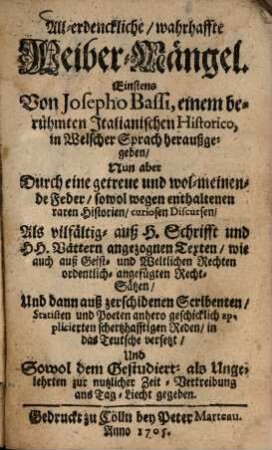 All-erdenckliche/wahrhaffte
Weiber-Mängel.
Einstens
Von Josepho Bassi, einem be-
rühmten Italianischen Historico,
in Welscher Sprach heraußge-
geben/
Nun aber
Durch eine getreue und wol-meinen-
de Feder/sowol wegen enthaltenen
raren Historien/curiosen Discursen/
Als vilfältig-auß H. Schrifft und
HH. Vättern angezognen Texten/wie
auch auß Geist- und Weltlichen Rechten
ordentlich-angefügten Recht-
Sätzen/
Und dann auß zerschidenen Scribenten/
Statisten und Poeten anhero geschicklich ap-
plicierten schertzhafftigen Reden/in
das Teutsche versetzt/
Und
Sowol dem Gestudiert-als Unge-
lehrten zur nutzlicher Zeit-Vertreibung
ans Tag-Liecht gegeben.
Gedruckt zu Cölln bey Peter Marteau.
Anno 1705.